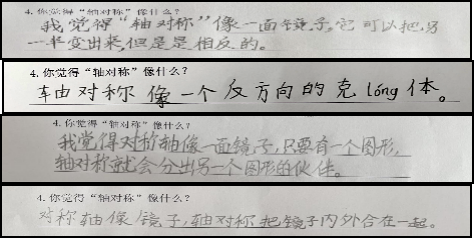 4. 你觉得“轴对称”像什么？
我觉得“轴对称”像一面镜子，它可以把另
一半变出来，但是是相反的。
4. 你觉得“轴对称”像什么？
轴对称像一个反方向的克lóng体。
4. 你觉得“轴对称”像什么？
我觉得对称轴像一面镜子，只要有一个图形，
轴对称就会分出另一个图形的伙伴。
4. 你觉得“轴对称”像什么？
对称轴像镜子，轴对称把镜子内外合在一起。